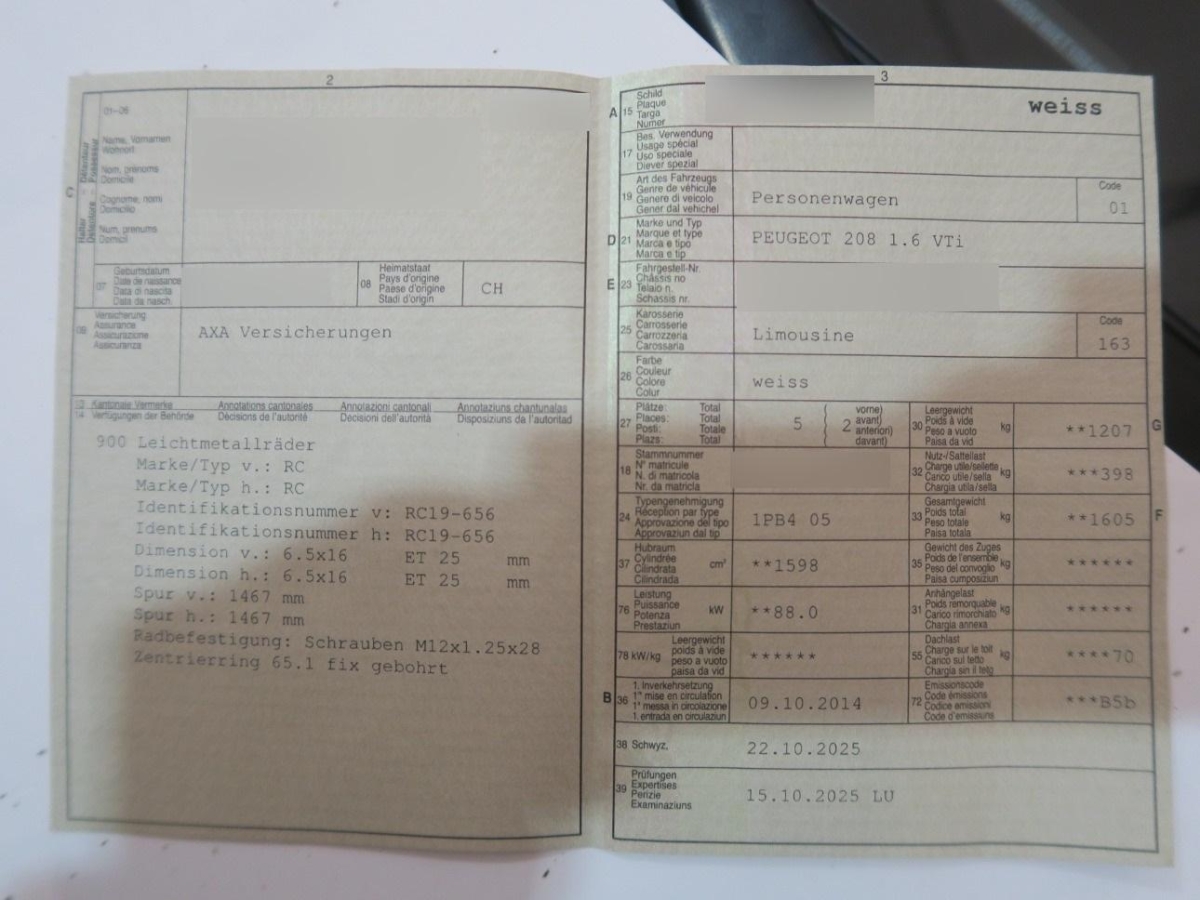 2
01-06
Name, Vornamen
Wohnort
Nom, prénoms
Domicile
Cognome, nomi
Domicilio
Num, prenums
Domicil
C
Halter
Détenteur
07
Geburtsdatum
Date de naissance
Data di nascita
Data da nasch.
08
Heimatstaat
Pays d'origine
Paese d'origine
Stadi d'origin
CH
09
Versicherung
Assurance
Assicurazione
Assicuranza
AXA Versicherungen
13 Kantonale Vermerke Annotations cantonales Annotazioni cantonali Annotaziuns chantunalas
14 Verfügungen der Behörde Décisions de l'autorité Decisioni dell'autorità Disposiziuns da l'autoritad
900 Leichtmetallräder
Marke/Typ v.: RC
Marke/Typ h.: RC
Identifikationsnummer v: RC19-656
Identifikationsnummer h: RC19-656
Dimension v.: 6.5x16 ET 25 mm
Dimension h.: 6.5x16 ET 25 mm
Spur v.: 1467 mm
Spur h.: 1467 mm
Radbefestigung: Schrauben M12x1.25x28
Zentrierring 65.1 fix gebohrt
3
A 15
Schild
Plaque
Targa
Numer
weiss
17
Bes. Verwendung
Usage spécial
Uso speciale
Diever spezial
19
Art des Fahrzeugs
Genre de véhicule
Genere di veicolo
Gener dal vehichel
Personenwagen
Code
01
D 21
Marke und Typ
Marque et type
Marca e tipo
Marca e tip
PEUGEOT 208 1.6 VTi
E 23
Fahrgestell-Nr.
Châssis no
Telaio n.
Schassis nr.
25
Karosserie
Carrosserie
Carrozzeria
Carossaria
Limousine
Code
163
26
Farbe
Couleur
Colore
Colur
weiss
27
Plätze: Total
Places: Total
Posti: Totale
Plazs: Total
5
2
vorne)
avant)
anteriori)
davant)
30
Leergewicht
Poids à vide
Peso a vuoto
Paisa da vid
kg
**1207
G
18
Stammnummer
N° matricule
N. di matricola
Nr. da matricla
32
Nutz-/Sattellast
Charge utile/sellette
Carico utile/sella
Chargia utila/sella
kg
***398
24
Typengenehmigung
Réception par type
Approvazione del tipo
Approvaziun dal tip
1PB4 05
33
Gesamtgewicht
Poids total
Peso totale
Paisa totala
kg
**1605
F
37
Hubraum
Cylindrée
Cilindrata
Cilindrada
cm³
**1598
35
Gewicht des Zuges
Poids de l'ensemble
Peso del convoglio
Paisa cumposiziun
kg
******
76
Leistung
Puissance
Potenza
Prestaziun
kW
**88.0
31
Anhängelast
Poids remorquable
Carico rimorchiato
Chargia annexa
kg
******
78 kW/kg
Leergewicht
poids à vide
peso a vuoto
paisa da vid
******
55
Dachlast
Charge sur le toit
Carico sul tetto
Chargia sin il tetg
kg
****70
B 36
1. Inverkehrsetzung
1re mise en circulation
1a messa in circolazione
1. entrada en circulaziun
09.10.2014
72
Emissionscode
Code émissions
Codice emissioni
Code d'emissiuns
***B5b
38 Schwyz,
22.10.2025
39
Prüfungen
Expertises
Perizie
Examinaziuns
15.10.2025 LU